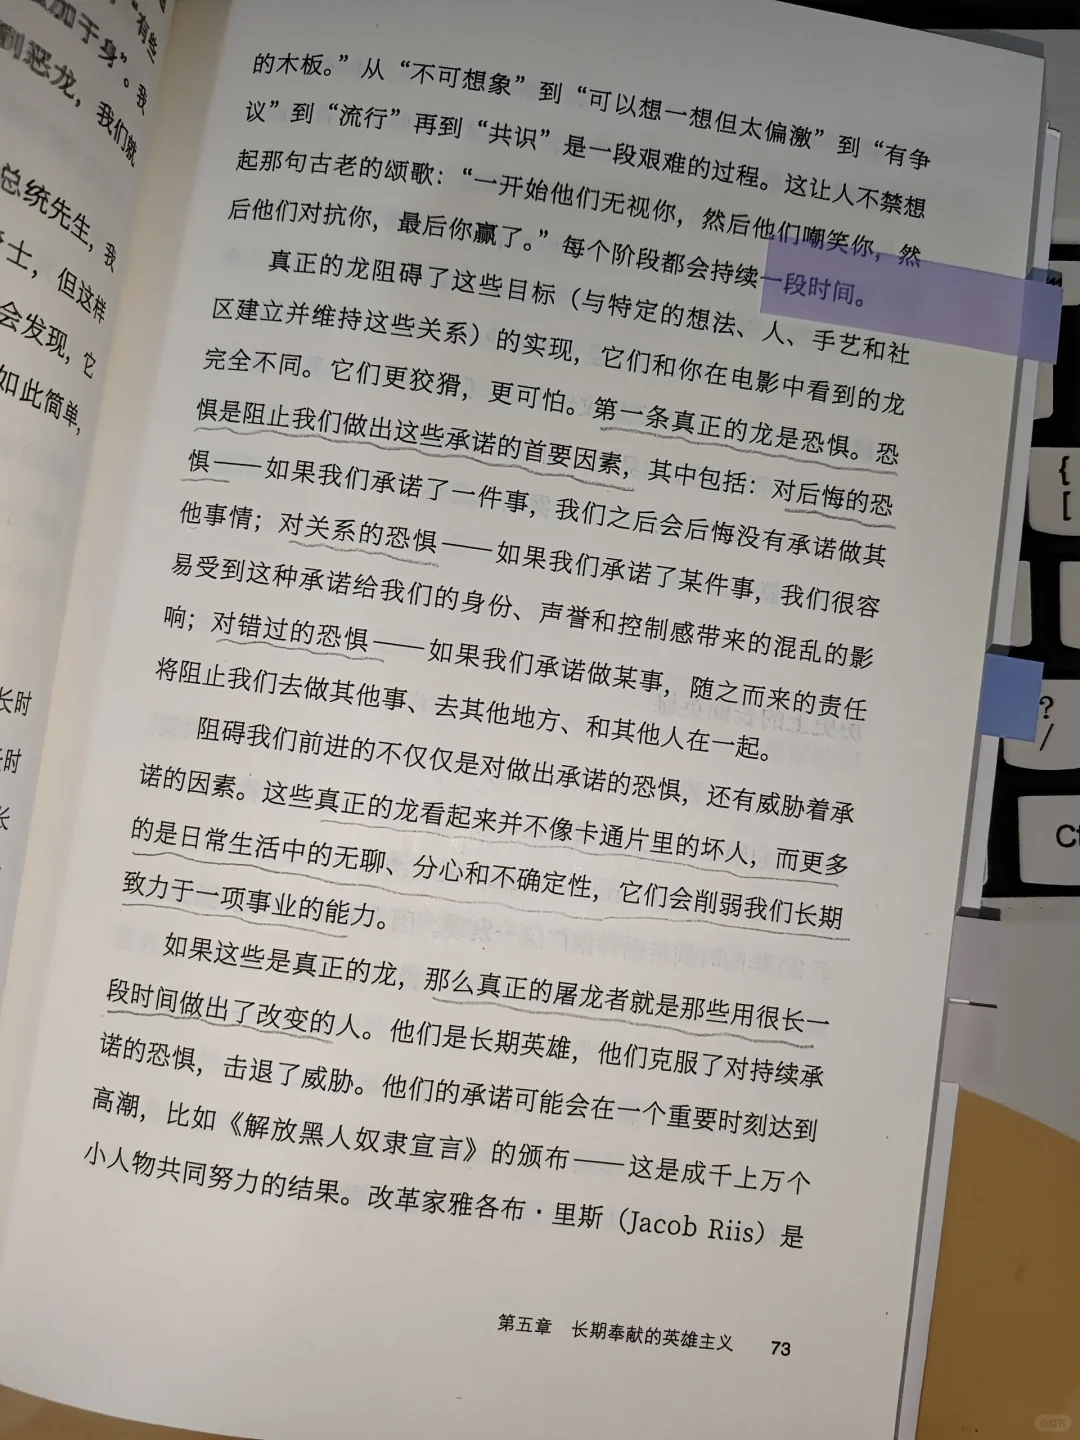 有些
加于身”。我
恶龙，我们就
总统先生，我
士，但这样
会发现，它
如此简单，
长时
时
长
的木板。”从“不可想象”到“可以想一想但太偏激”到“有争
议”到“流行”再到“共识”是一段艰难的过程。这让人不禁想
起那句古老的颂歌：“一开始他们无视你，然后他们嘲笑你，然
后他们对抗你，最后你赢了。”每个阶段都会持续一段时间。
真正的龙阻碍了这些目标（与特定的想法、人、手艺和社
区建立并维持这些关系）的实现，它们和你在电影中看到的龙
完全不同。它们更狡猾，更可怕。第一条真正的龙是恐惧。恐
惧是阻止我们做出这些承诺的首要因素，其中包括：对后悔的恐
惧——如果我们承诺了一件事，我们之后会后悔没有承诺做其
他事情；对关系的恐惧——如果我们承诺了某件事，我们很容
易受到这种承诺给我们的身份、声誉和控制感带来的混乱的影
响；对错过的恐惧——如果我们承诺做某事，随之而来的责任
将阻止我们去做其他事、去其他地方、和其他人在一起。
阻碍我们前进的不仅仅是对做出承诺的恐惧，还有威胁着承
诺的因素。这些真正的龙看起来并不像卡通片里的坏人，而更多
的是日常生活中的无聊、分心和不确定性，它们会削弱我们长期
致力于一项事业的能力。
如果这些是真正的龙，那么真正的屠龙者就是那些用很长一
段时间做出了改变的人。他们是长期英雄，他们克服了对持续承
诺的恐惧，击退了威胁。他们的承诺可能会在一个重要时刻达到
高潮，比如《解放黑人奴隶宣言》的颁布——这是成千上万个
小人物共同努力的结果。改革家雅各布·里斯（Jacob Riis）是
第五章 长期奉献的英雄主义 73
{
[
?
/